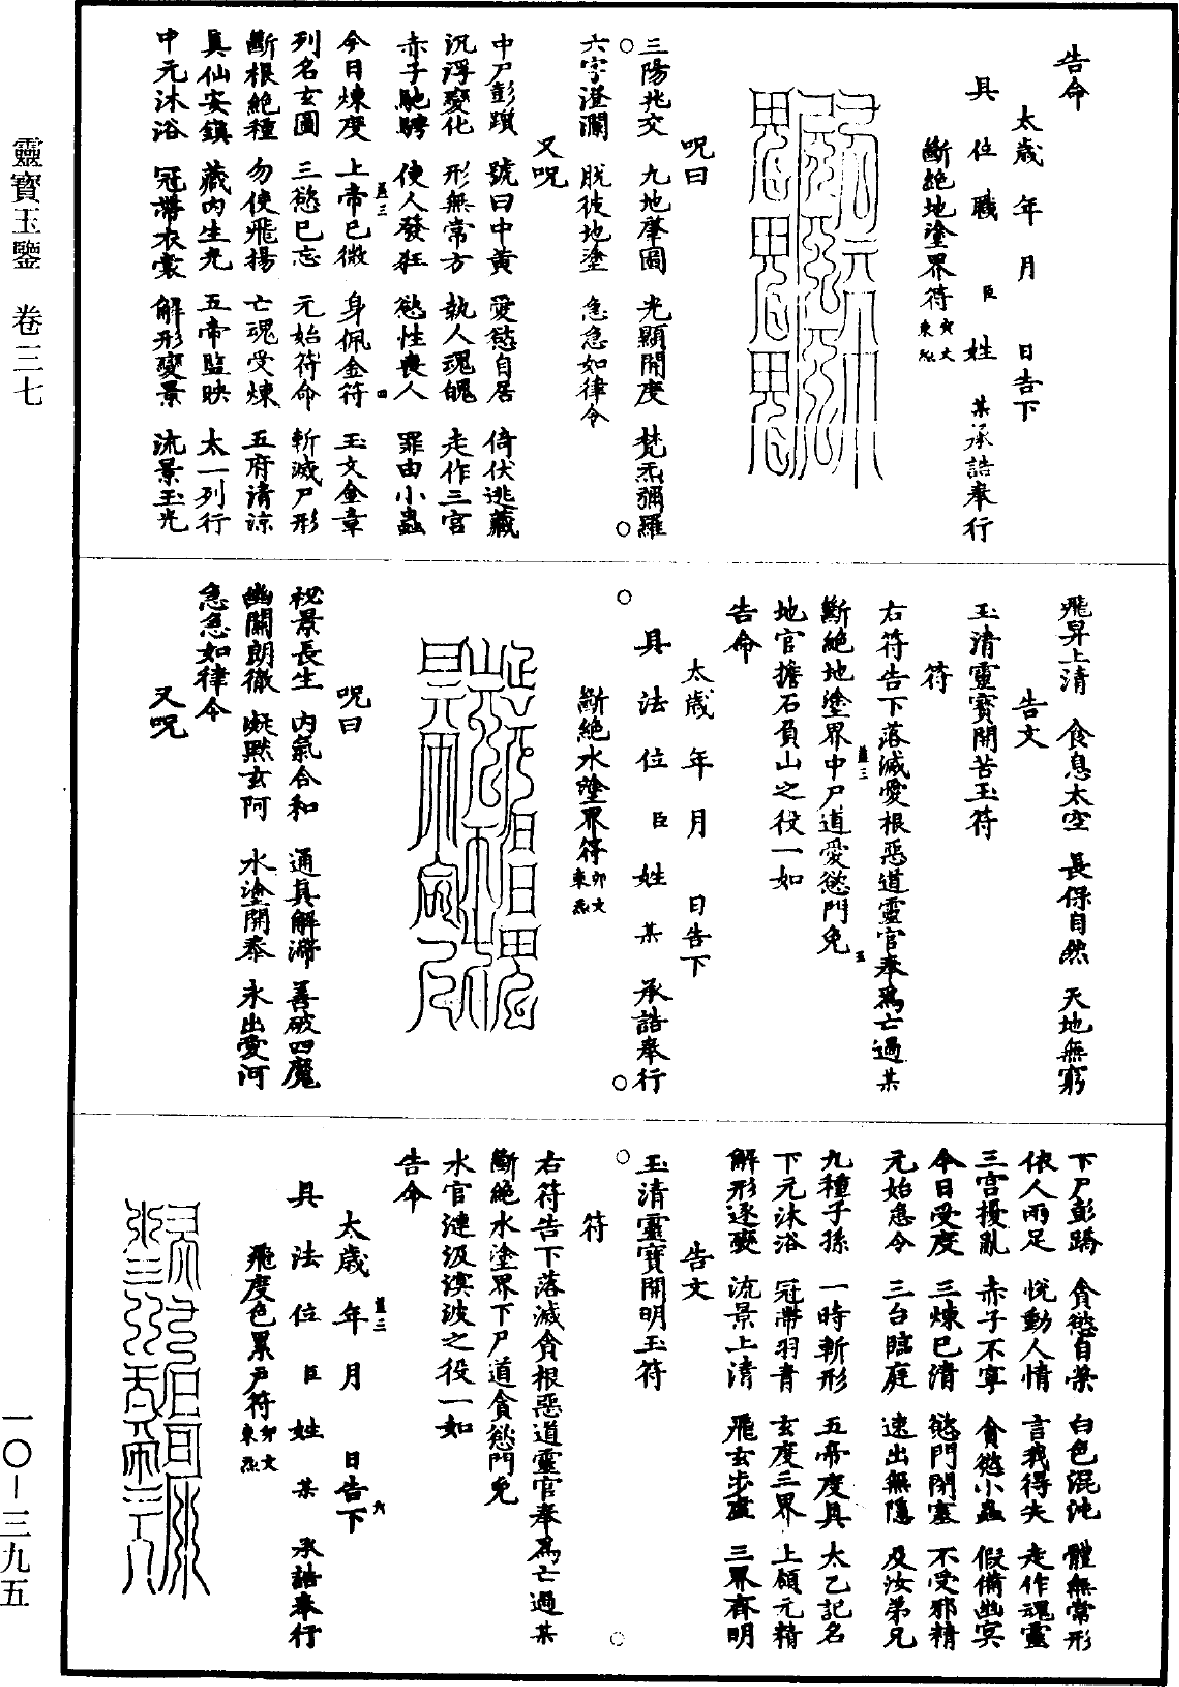 靈寶玉鑒　卷三七
一〇－三九五
告命
太歲　年　月　日告下
具　位　職　臣　姓　某承誥奉行
斷絕地塗界符 寅文 東炁
呪曰
三陽兆交　九地肇圖　光顯開度　梵炁彌羅
六字澄瀾　脫彼地塗　急急如律令
又呪
中尸彭躓　號曰中黃　愛慾自居　倚伏逃藏
沉浮變化　形無常方　執人魂魄　走作三宮
赤子馳騁　使人發狂　慾性喪人　罪由小蟲
今日煉度　上帝已微　身佩金符　玉文金章
列名玄圖　三慾已忘　元始符命　斬滅尸形
斷根絕種　勿使飛揚　亡魂受煉　五府清涼
真仙安鎮　藏內生光　五帝監映　太一列行
中元沐浴　冠帶衣裳　解形變景　流景玉光
飛昇上清　食息太空　長保自然　天地無窮
告文
玉清靈寶開苦玉符
符
右符告下落滅愛根惡道靈官奉為亡過某
斷絕地塗界中尸道愛慾門免
地官擔石負山之役一如
告命
太歲　年　月　日告下
具　法　位　臣　姓　某　承誥奉行
斷絕水塗界符 卯文 東炁
呪曰
祕景長生　內氣合和　通真解滯　善破四魔
幽關朗徹　凝默玄阿　水塗開泰　永出愛河
急急如律令
又呪
下尸彭蹻　貪慾自榮　白色混沌　體無常形
依人兩足　悅動人情　言我得失　走作魂靈
三宮擾亂　赤子不寧　貪慾小蟲　假俻幽冥
今日受度　三煉已清　慾門閉塞　不受邪精
元始急令　三台臨庭　速出無隱　及汝弟兄
九種子孫　一時斬形　五帝度具　太乙記名
下元沐浴　冠帶羽青　玄度三界　上領元精
解形逐變　流景上清　飛玄步虛　三界齊明
告文
玉清靈寶開明玉符
符
右符告下落滅貪根惡道靈官奉為亡過某
斷絕水塗界下尸道貪慾門免
水官漣汲溟波之役一如
告命
太歲　年　月　日告下
具　法　位　臣　姓　某　承誥奉行
飛度色累戶符 卯文 東炁